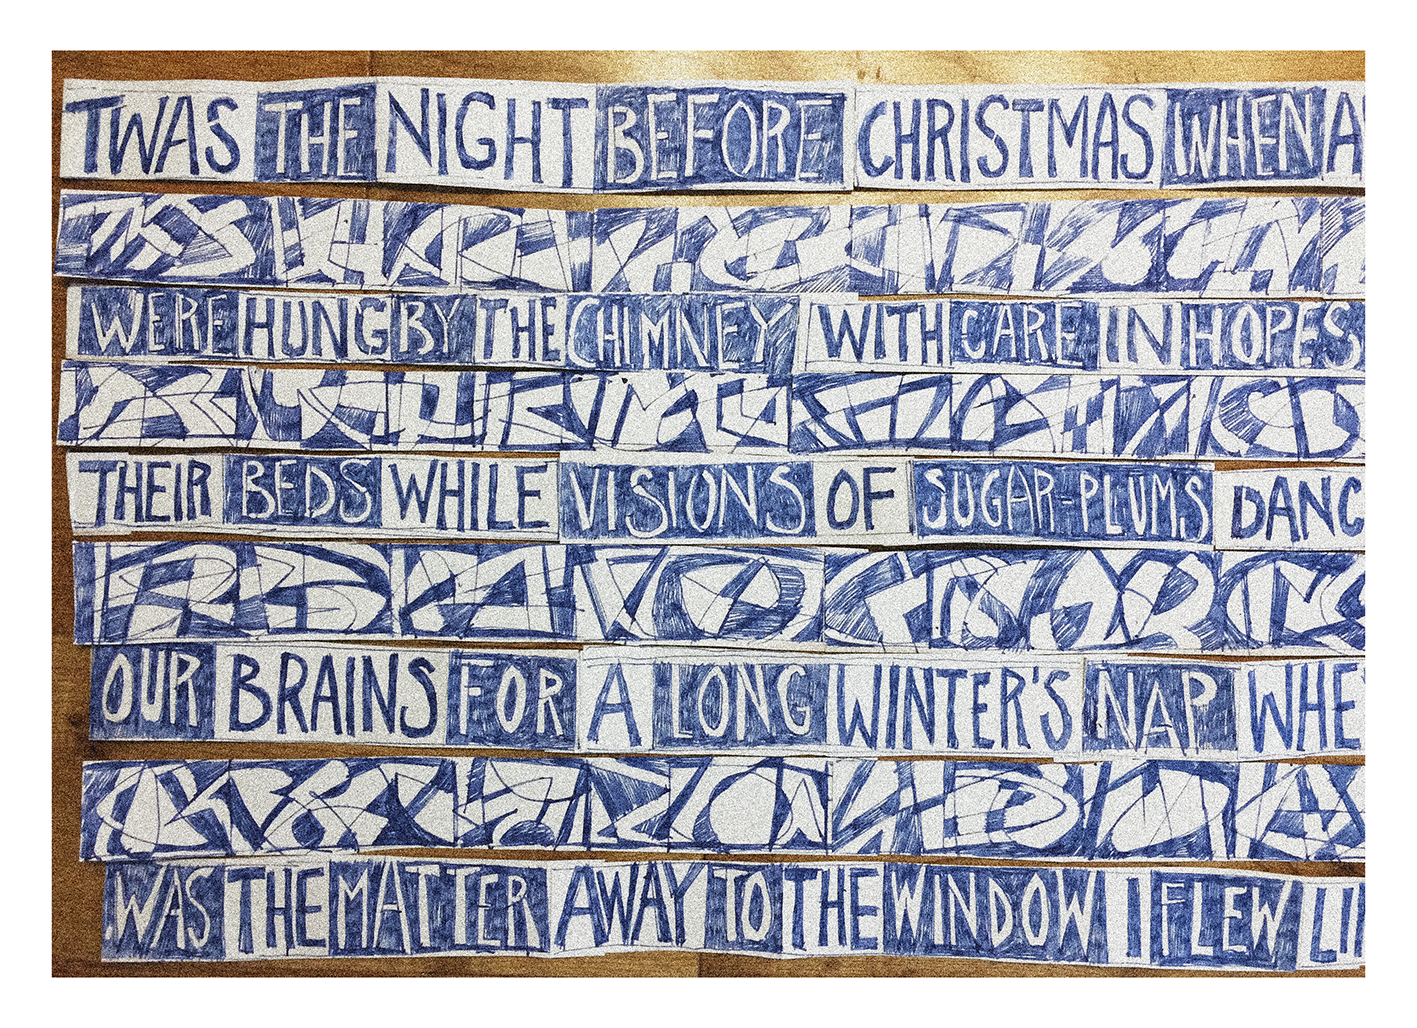 TWAS THE NIGHT BEFORE CHRISTMAS WHEN A
WERE HUNG BY THE CHIMNEY WITH CARE IN HOPES
THEIR BEDS WHILE VISIONS OF SUGAR-PLUMS DANC
OUR BRAINS FOR A LONG WINTER'S NAP WHE
WAS THE MATTER AWAY TO THE WINDOW I FLEW LI